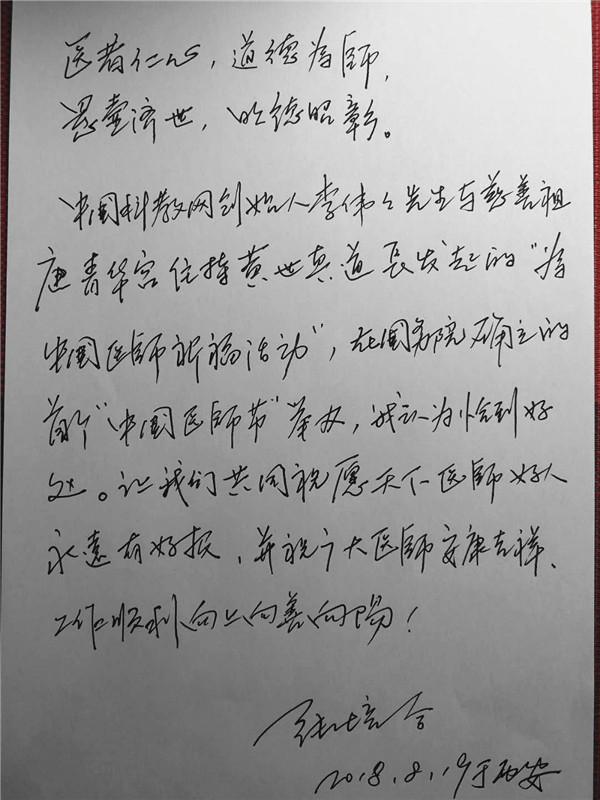 医者仁心，道德为師，
悬壶济世，明德昭彰。
中国科教网创始人李伟先生与慈善祖
庙青华宫住持黄世真道长发起的“為
中国医師祈福活动”，在国务院确立的
首个“中国医師节”举办，我认为恰到好
处。让我们共同祝愿天下医師好人
永远有好报，并祝广大医師安康吉祥、
工作顺利向上向善向阳！
张培合
2018.8.19于西安